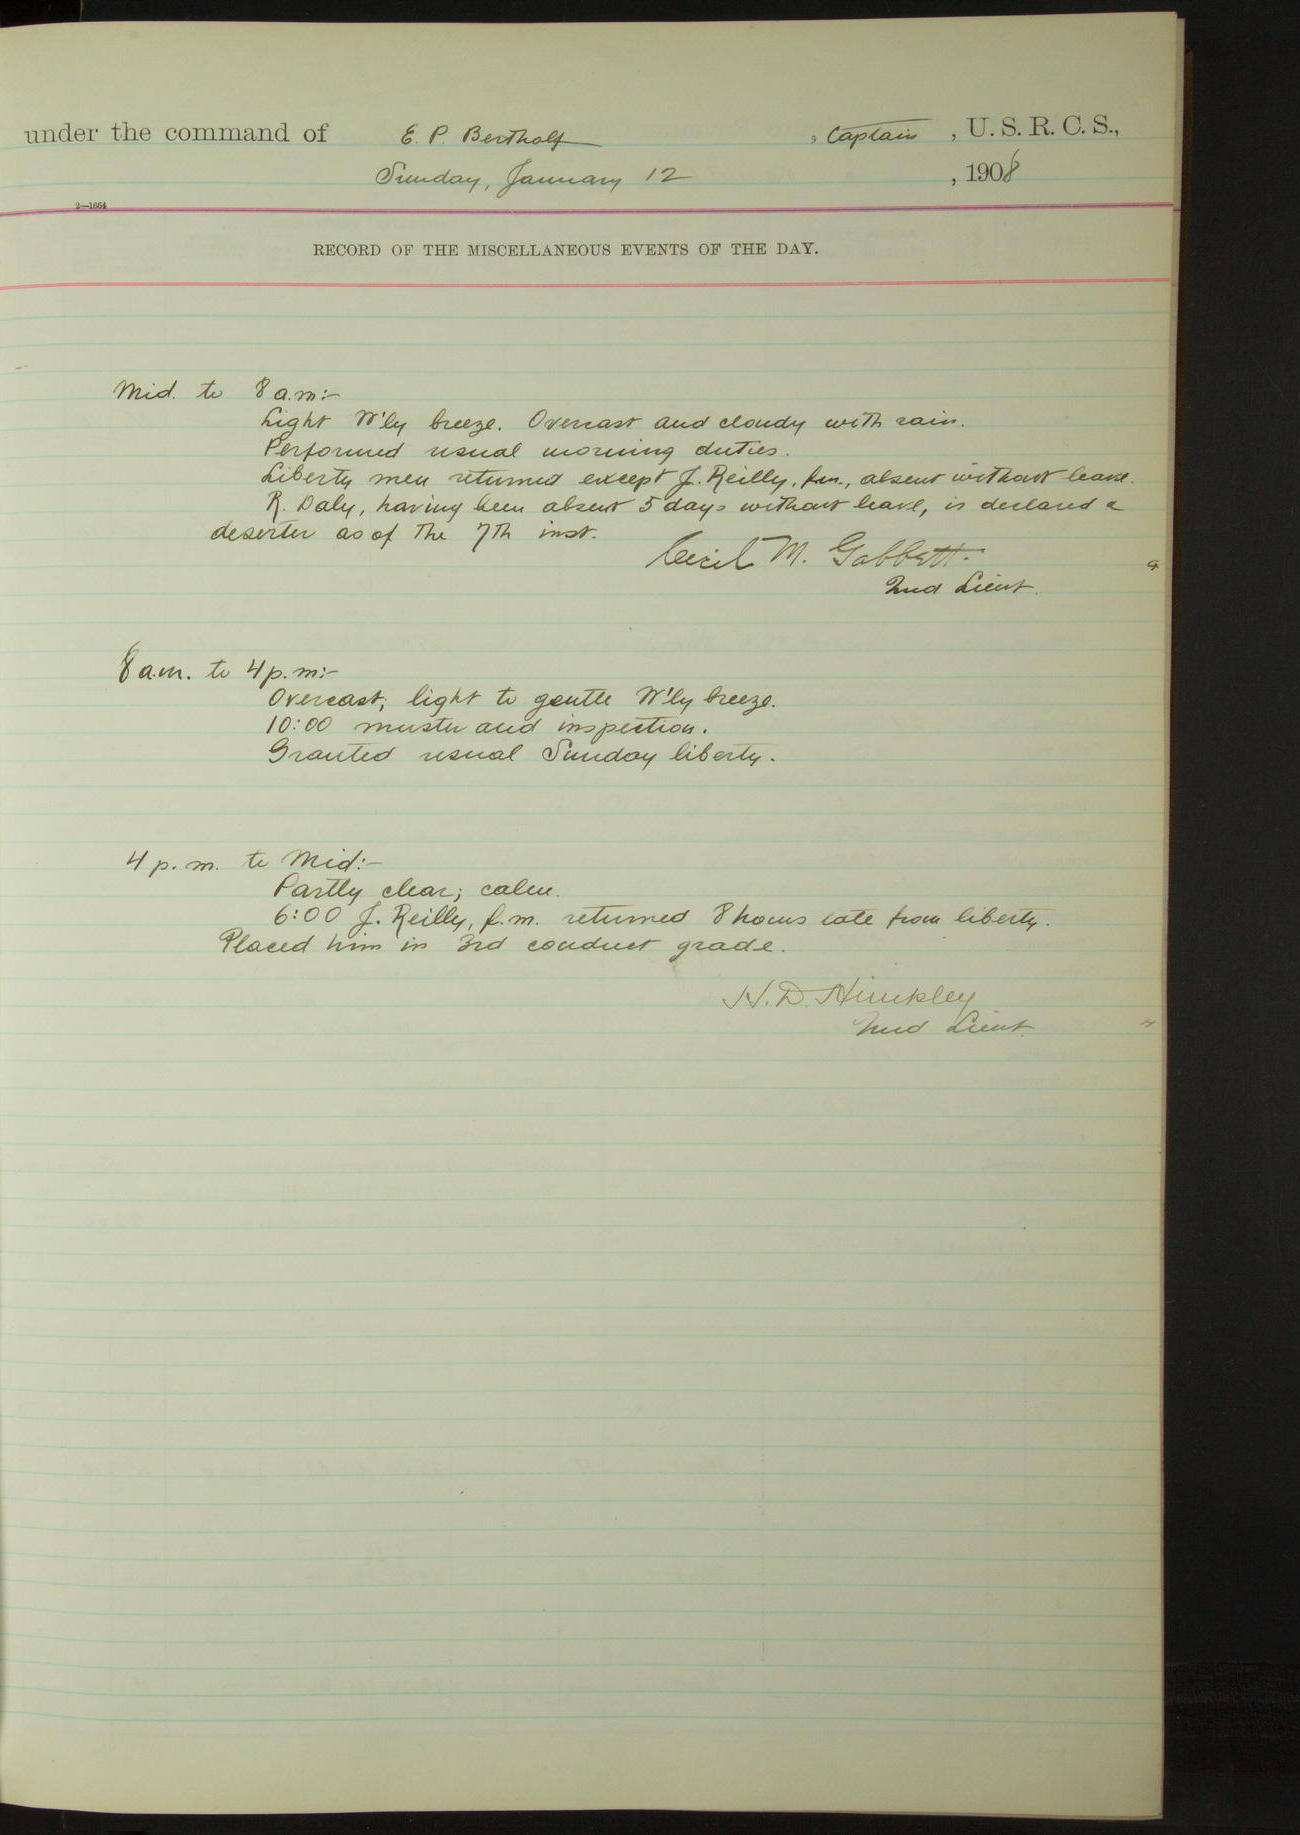 under the command of E. P. Bertholf, Captain, U. S. R. C. S.,
Sunday, January 12, 1908
2—1664
RECORD OF THE MISCELLANEOUS EVENTS OF THE DAY.
Mid. to 8 a.m:-
Light W'ly breeze. Overcast and cloudy with rain.
Performed usual morning duties.
Liberty men returned except J. Reilly, f.m., absent without leave.
R. Daly, having been absent 5 days without leave, is declared a
deserter as of the 7th inst.
Cecil M. Gabbett.
2nd Lieut.
8 a.m. to 4 p.m:-
Overcast; light to gentle W'ly breeze.
10:00 muster and inspection.
Granted usual Sunday liberty.
4 p.m. to Mid:-
Partly clear; calm.
6:00 J. Reilly, f.m. returned 8 hours late from liberty.
Placed him in 3rd conduct grade.
H. D. Hinckley
2nd Lieut.